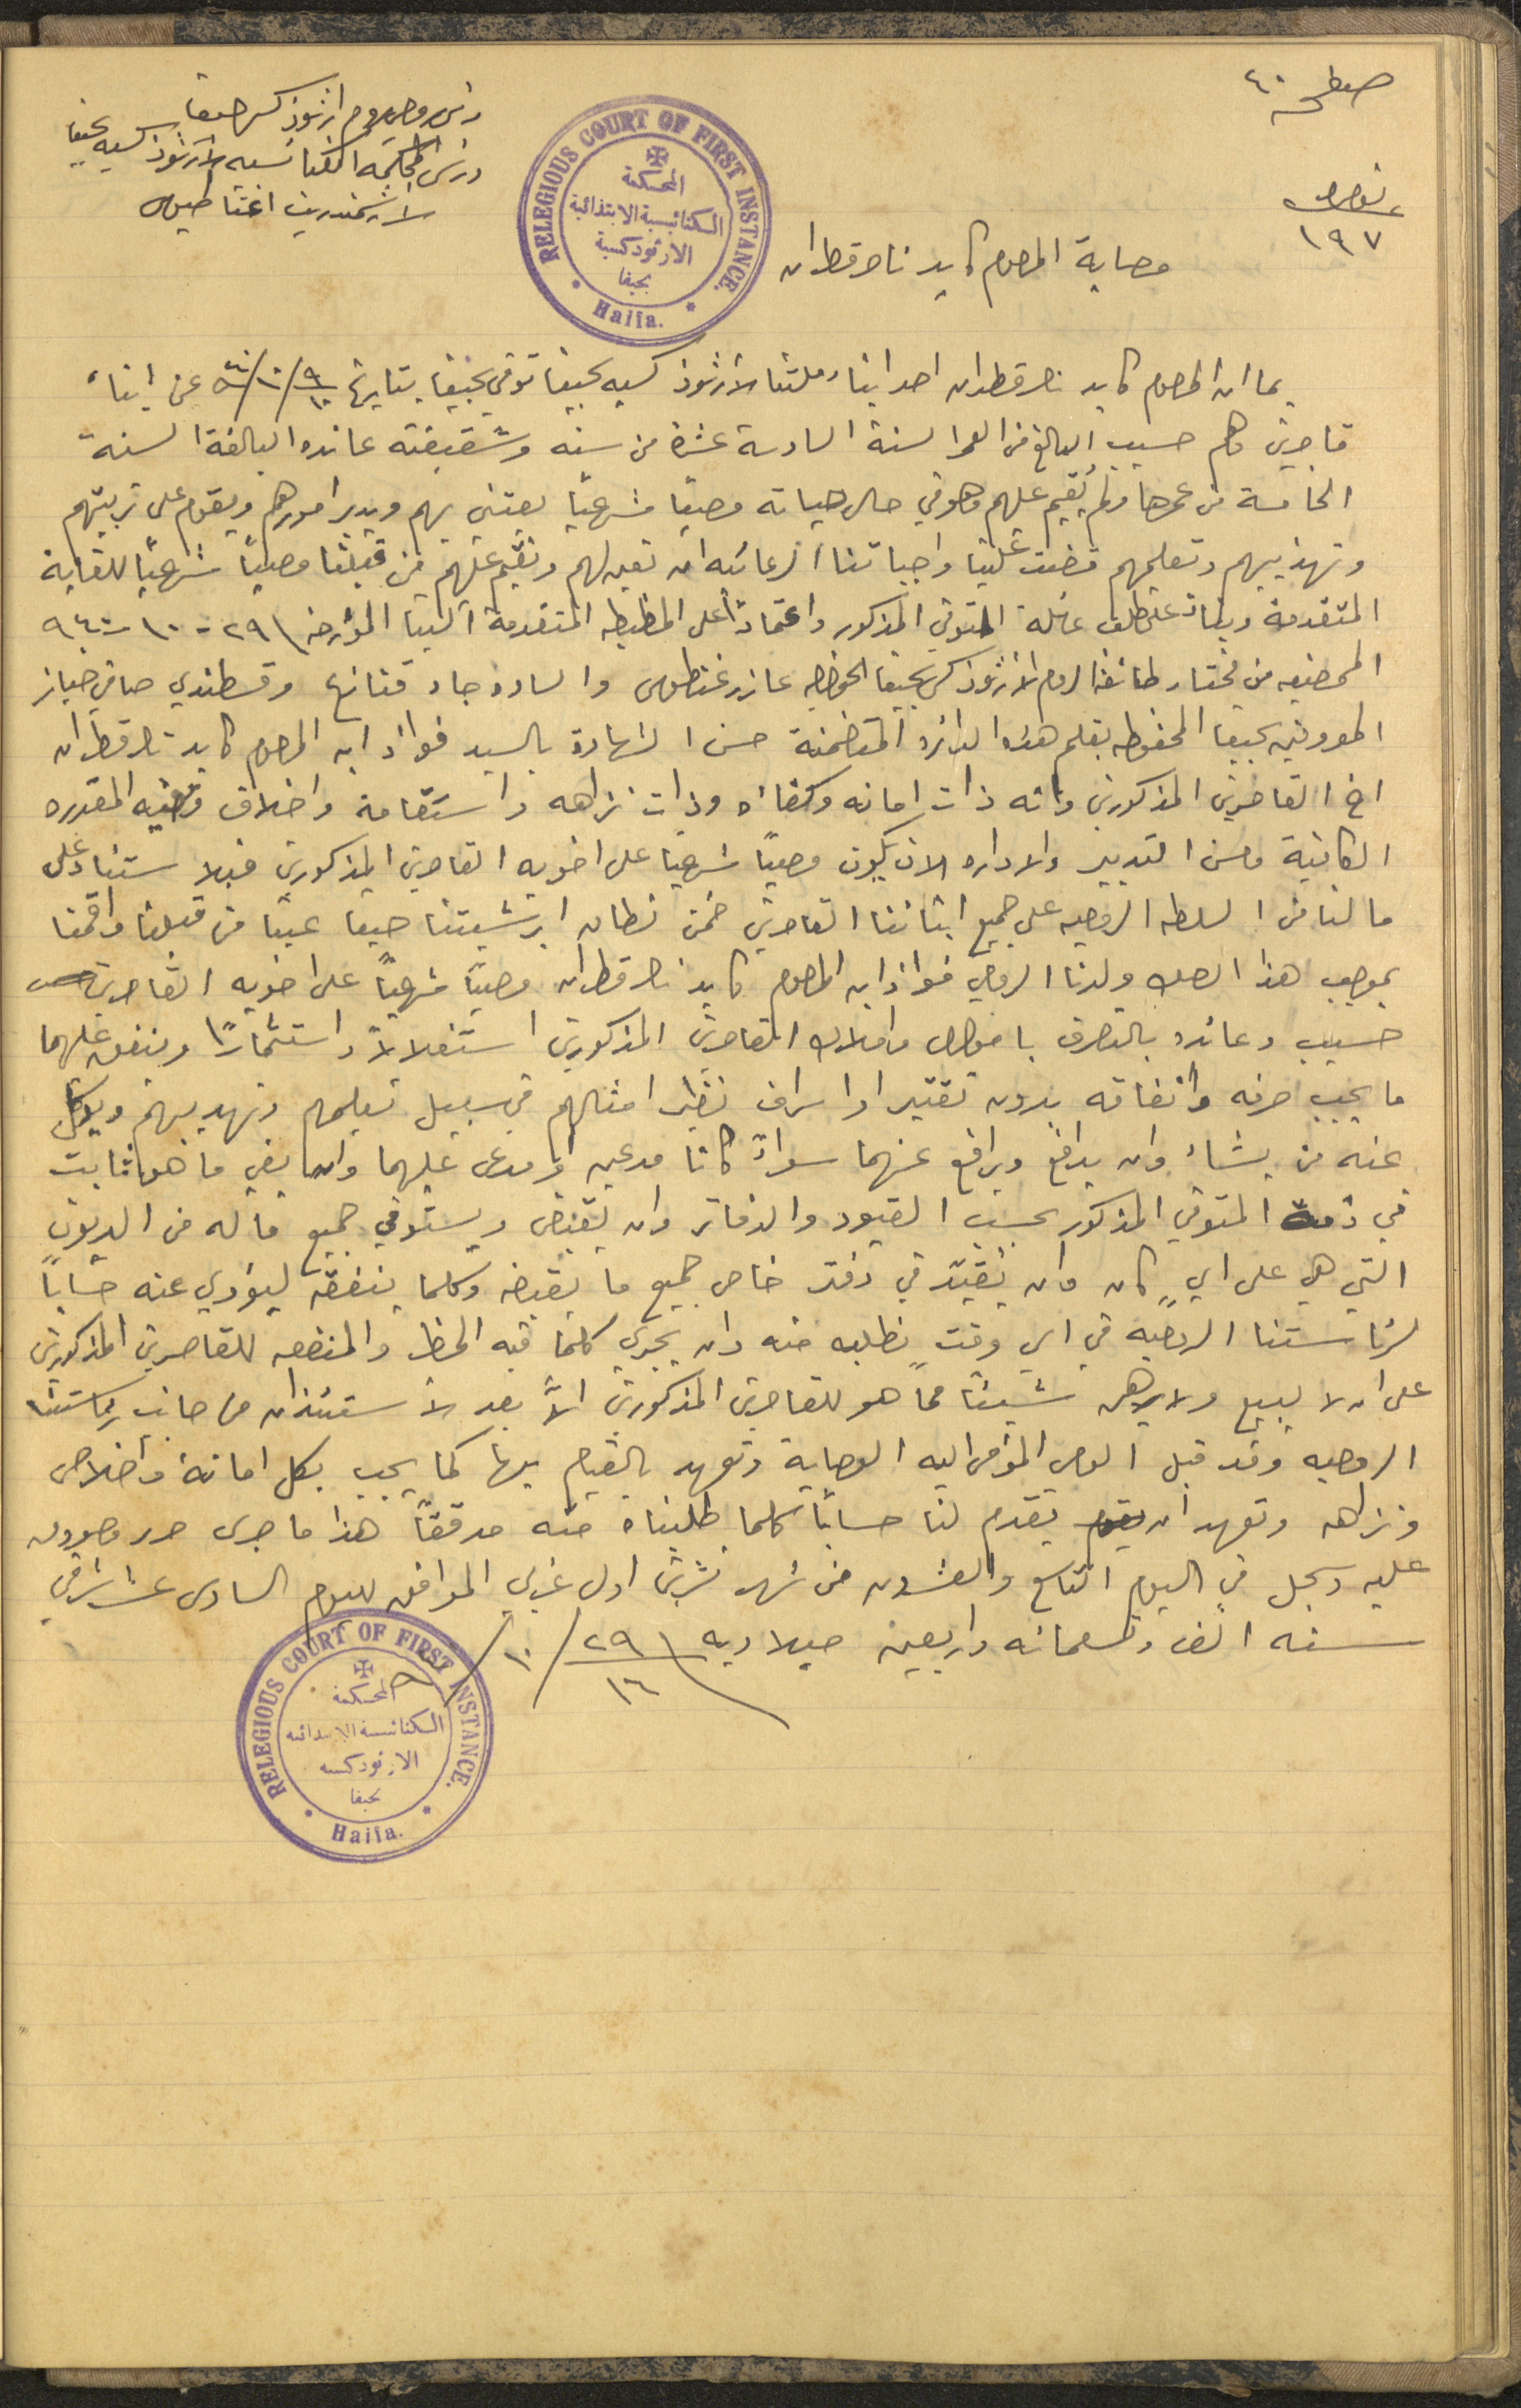 صفحة ٤٠
رئيس روحي روم ارثوذكس حيفا
ورئيس المحكمة الكنائسيه الارثوذكسيه بحيفا
الارشمندريت اغناطيوس
نمرة
١٩٧
RELEGIOUS COURT OF FIRST INSTANCE.
المحكمة
الكنائيسية الابتدائية
الارثوذكسية
بحيفا
Haifa.
وصاية المرحوم كايد ناصر قطران
بما ان المرحوم كايد ناصر قطران احد ابناء ملتنا الارثوذكسيه بحيفا توفي بحيفا بتاريخ عن ابناء
قاصرين وهم حسيب البالغ من العمر السنة السادسة عشرة من سنه وشقيقته عائده البالغة السنة
الخامسة من عمرها ولم يقيم عليهم وهو في حال حياته وصيًا شرعيًا يعتني بهم ويدير امورهم ويقوم على تربيتهم
وتهذيبهم وتعليمهم قضت علينا واجباتنا الرعائيه ان نعين لهم ونقيم عليهم من قبلنا وصيًا شرعيًا للغاية
المتقدمة وبناءً على طلب عائلة المتوفي المذكور واعتمادًا على المضبطه المتقدمة الينا المؤرخه ٢٩ - ١٠ - ٩٤٠
الممضيه من مختار طائفة الروم الارثوذكس بحيفا الخواجه عازر غنطوس والساده جاد قنازع وقسطندي صافي خباز
المعروفين بحيفا المحفوظه بقلم هذه الدائره المتضمنة حسن الشهادة بالسيد فواز ابن المرحوم كايد ناصر قطران
اخ القاصرين المذكورين وانه ذات امانه وكفائه وذات نزاهه واستقامة واخلاق وفيه المقدره
الكافية وحسن التدبير والاداره لان يكون وصيًا شرعيًا على اخويه القاصرين المذكورين فبالاستناد على
ما لنا من السلطه الروحيه على جميع ابنائنا القاصرين ضمن نطاق ابرشيتنا حيفا عينا من قبلنا واقمنا
بموجب هذا الصك ولدنا الروحي فواز ابن المرحوم كايد ناصر قطران وصيًا شرعيًا على اخويه القاصرين
حسيب وعائده بالتصرف باموال واملاك القاصرين المذكورين استغلالاً واستثمارًا وينفق عليهما
ما يجب صرفه وانفاقه بدون تقتير او اسراف نظير امثالهم في سبيل تعليمهم وتهذيبهم ويوكل
عنه من يشاء وان يدافع ويرافع عنهما سواءً كانا مدعين او مدعى عليهما وان يفي ما هو ثابت
في ذمة المتوفي المذكور بحسب القيود والدفاتر وان يقبض ويستوفي جميع ما له من الديون
التي هي على ايٍ كان وان يقيّد في دفتر خاص جميع ما يقبضه وكلما ينفقه ليؤدي عنه حسابًا
لرئاستنا الروحيه في اي وقتٍ نطلبه منه وان يجري كلما فيه الحظ والمنفعه للقاصرين المذكورين
على ان لا يبيع ولا يرهن شيئا مما هو للقاصرين المذكورين الاّ بعد الاستئذان من جانب رئاستنا
الروحيه وقد قبل الوصي المؤمى اليه الوصاية وتعهد بالقيام بها كما يجب بكل امانة واخلاص
ونزاهه وتعهد ان يقدم لنا حسابًا كلما طلبناه منه مدققًا هذا ما جرى حرر وصودق
عليه وسجل في اليوم التاسع والعشرون من شهر تشرين اول غربي الموافق لليوم السادس عشر شرقي
سنه الف وتسعمائه واربعين ميلاديه ٢٩/١٦ /١٠/
RELEGIOUS COURT OF FIRST INSTANCE.
المحكمة
الكنائيسية الابتدائية
الارثوذكسية
بحيفا
Haifa.